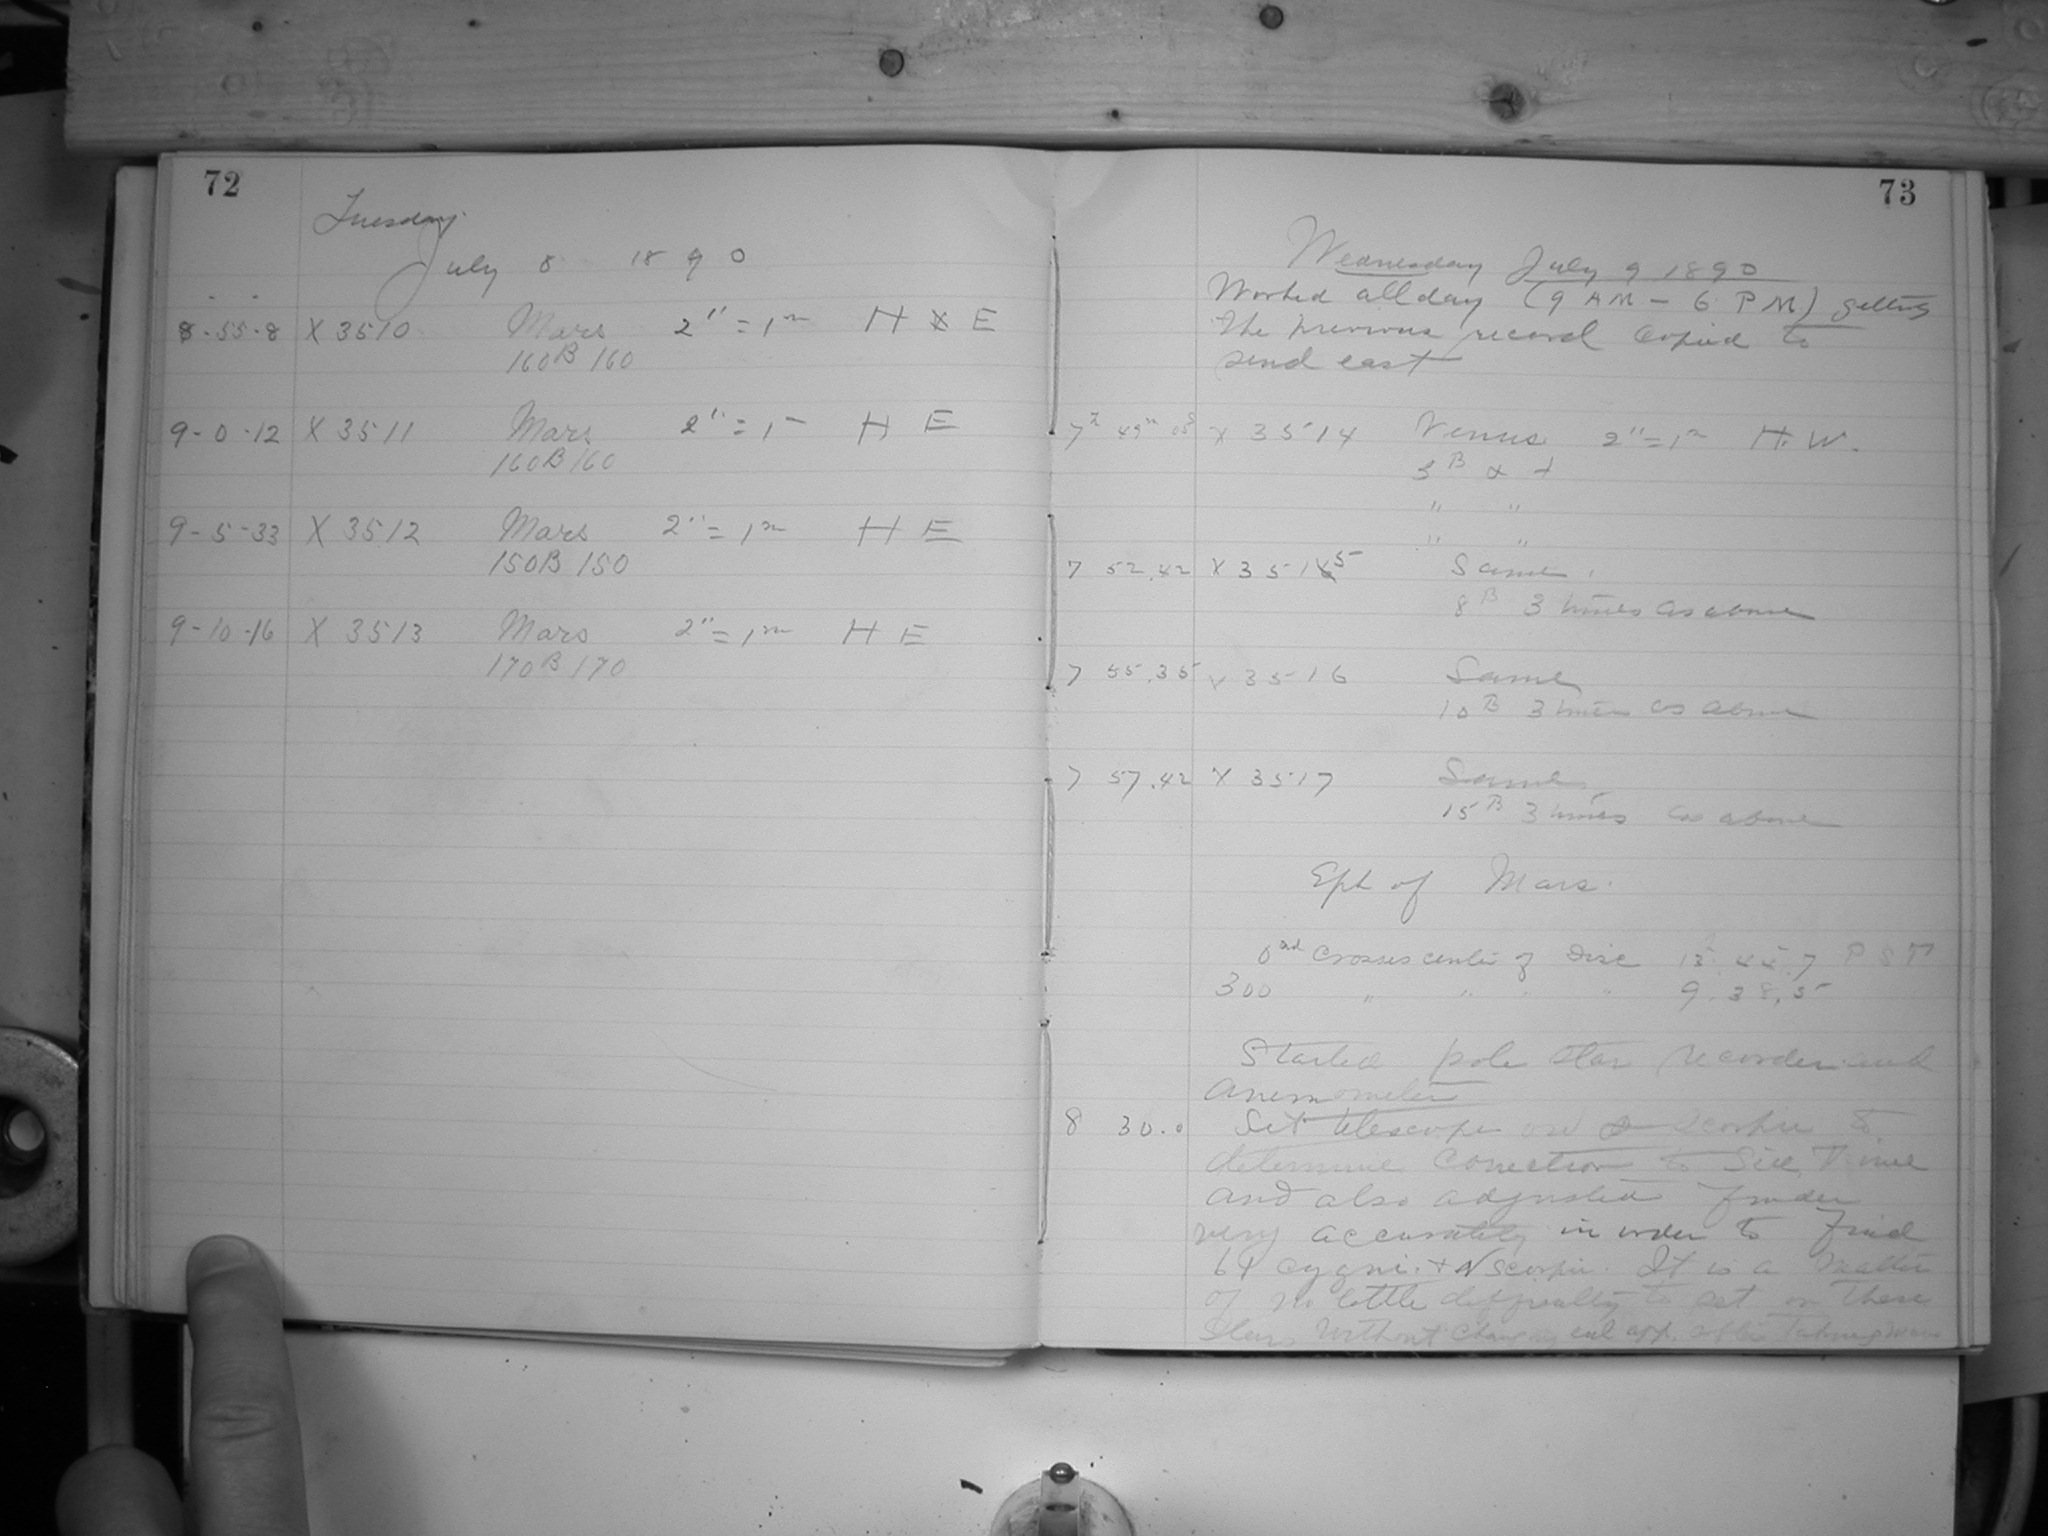 72
Tuesday
July 8 1890
8-55-8 X 3510 Mars 2" = 1m H E
160 B 160
9-0-12 X 3511 Mars 2" = 1m H E
160 B 160
9-5-33 X 3512 Mars 2" = 1m H E
150 B 150
9-10-16 X 3513 Mars 2" = 1m H E
170 B 170
73
Wednesday July 9 1890
Worked all day (9 AM - 6 PM) getting
the previous record copied to
send east
7h 49m 08s X 3514 Venus 2" = 1m H. W.
3 B
" "
" "
7 52.42 X 3515 Same
8 B 3 times as above
7 55.35 X 3516 Same
10 B 3 times as above
7 57.42 X 3517 Same
15 B 3 times as above
Eph of Mars.
0 crosses center of Disc 7 P S T
300 " " " " 9.38.35
Started pole star recorder and
anemometer
8 30.0 Set telescope on Scorpii to
determine correction to Sid. Time
and also adjusted finder
very accurately in order to find
61 cygni + Scorpii. It is a matter
of no little difficulty to set on these
stars without changing